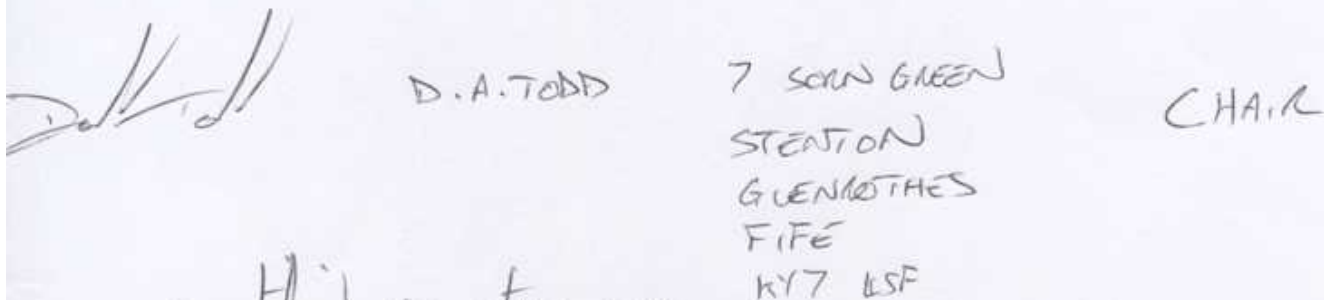 D.A.TODD
7 SORN GREEN
STENTON
GLENROTHES
FIFE
KY7 4SF
CHAIR